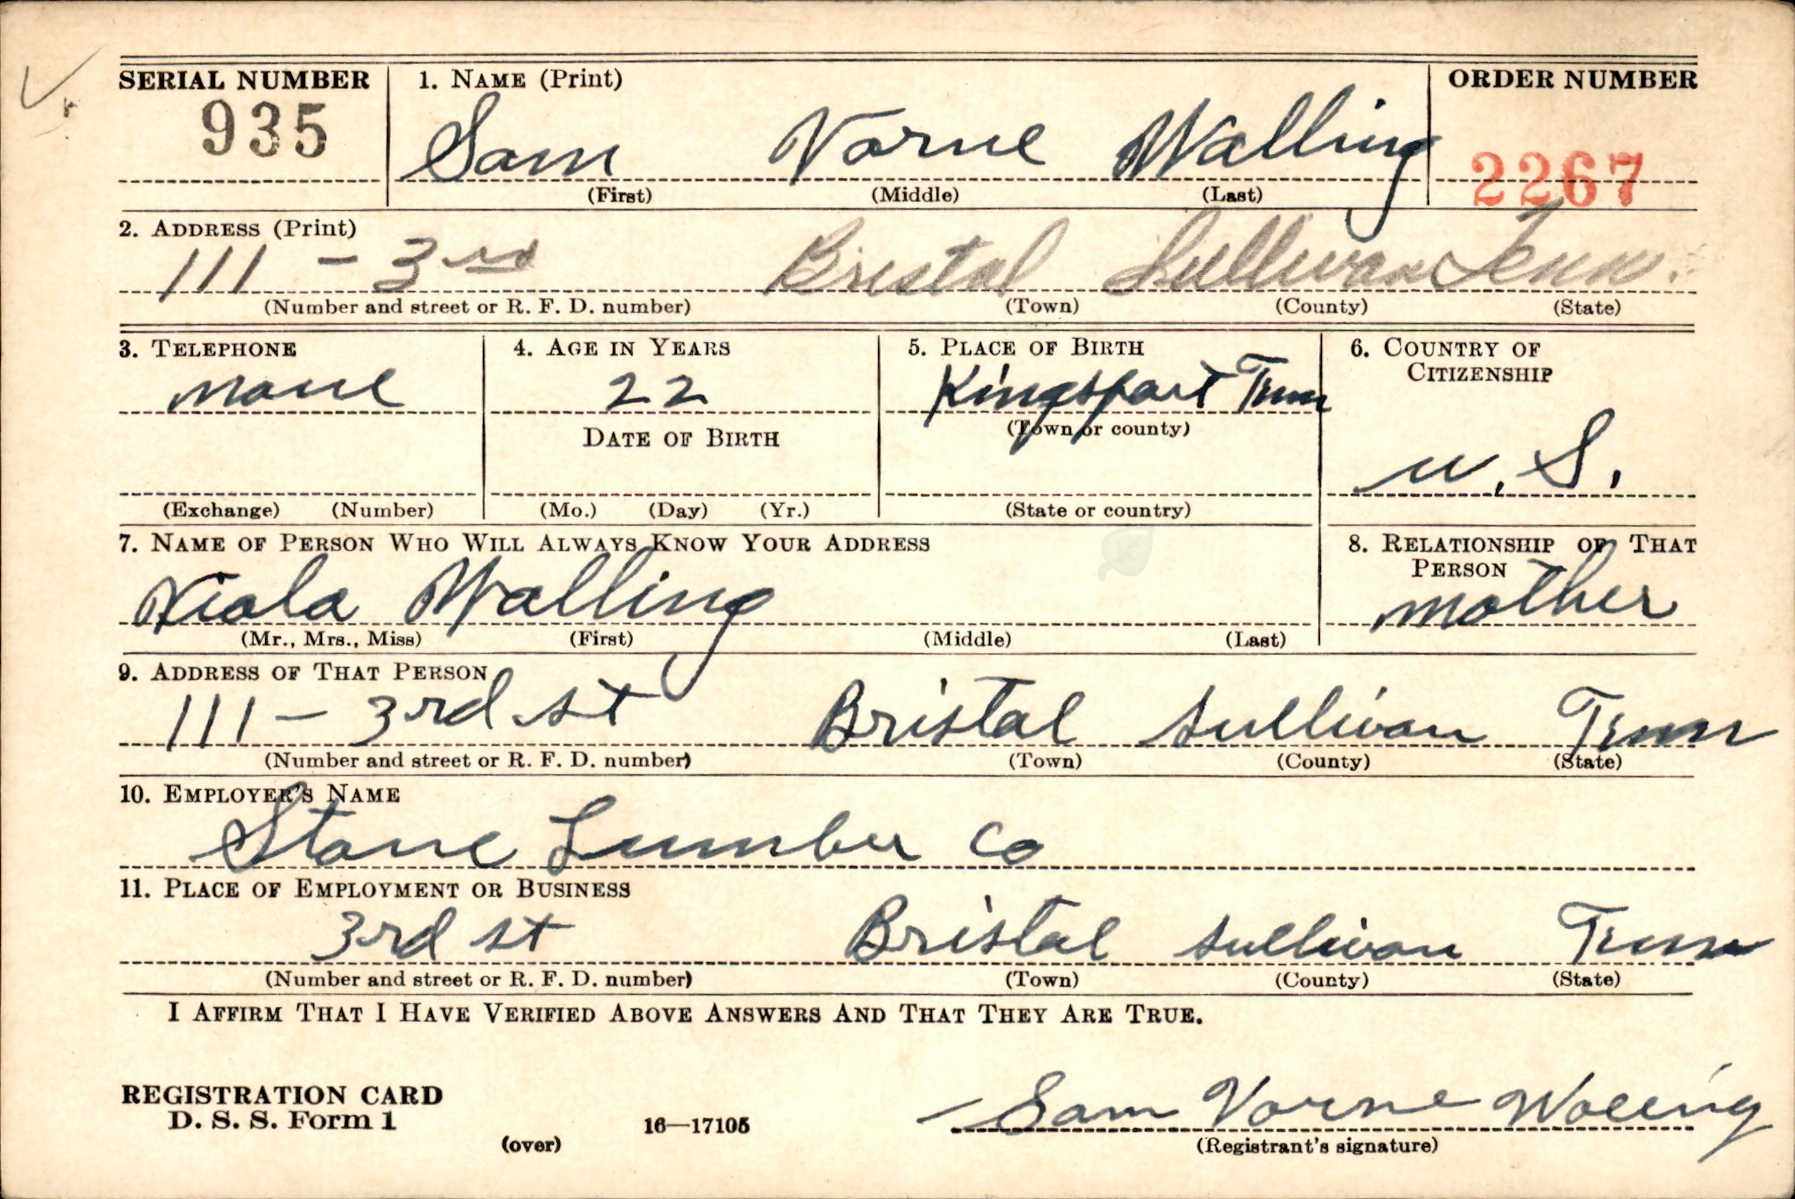 SERIAL NUMBER 1. NAME (Print) ORDER NUMBER
935 Sam Vorne Walling 2267
(First) (Middle) (Last)
2. ADDRESS (Print)
111 - 3rd Bristol Sullivan Tenn.
(Number and street or R. F. D. number) (Town) (County) (State)
3. TELEPHONE 4. AGE IN YEARS 5. PLACE OF BIRTH 6. COUNTRY OF CITIZENSHIP
none 22 Kingsport Tenn
(Town or county)
DATE OF BIRTH
U. S.
(Exchange) (Number) (Mo.) (Day) (Yr.) (State or country)
7. NAME OF PERSON WHO WILL ALWAYS KNOW YOUR ADDRESS 8. RELATIONSHIP OF THAT PERSON
Viola Walling mother
(Mr., Mrs., Miss) (First) (Middle) (Last)
9. ADDRESS OF THAT PERSON
111 - 3rd st Bristol Sullivan Tenn
(Number and street or R. F. D. number) (Town) (County) (State)
10. EMPLOYER'S NAME
Stone Lumber Co
11. PLACE OF EMPLOYMENT OR BUSINESS
3rd st Bristol Sullivan Tenn
(Number and street or R. F. D. number) (Town) (County) (State)
I AFFIRM THAT I HAVE VERIFIED ABOVE ANSWERS AND THAT THEY ARE TRUE.
REGISTRATION CARD
D. S. S. Form 1
Sam Vorne Walling
(over) 16—17105 (Registrant's signature)